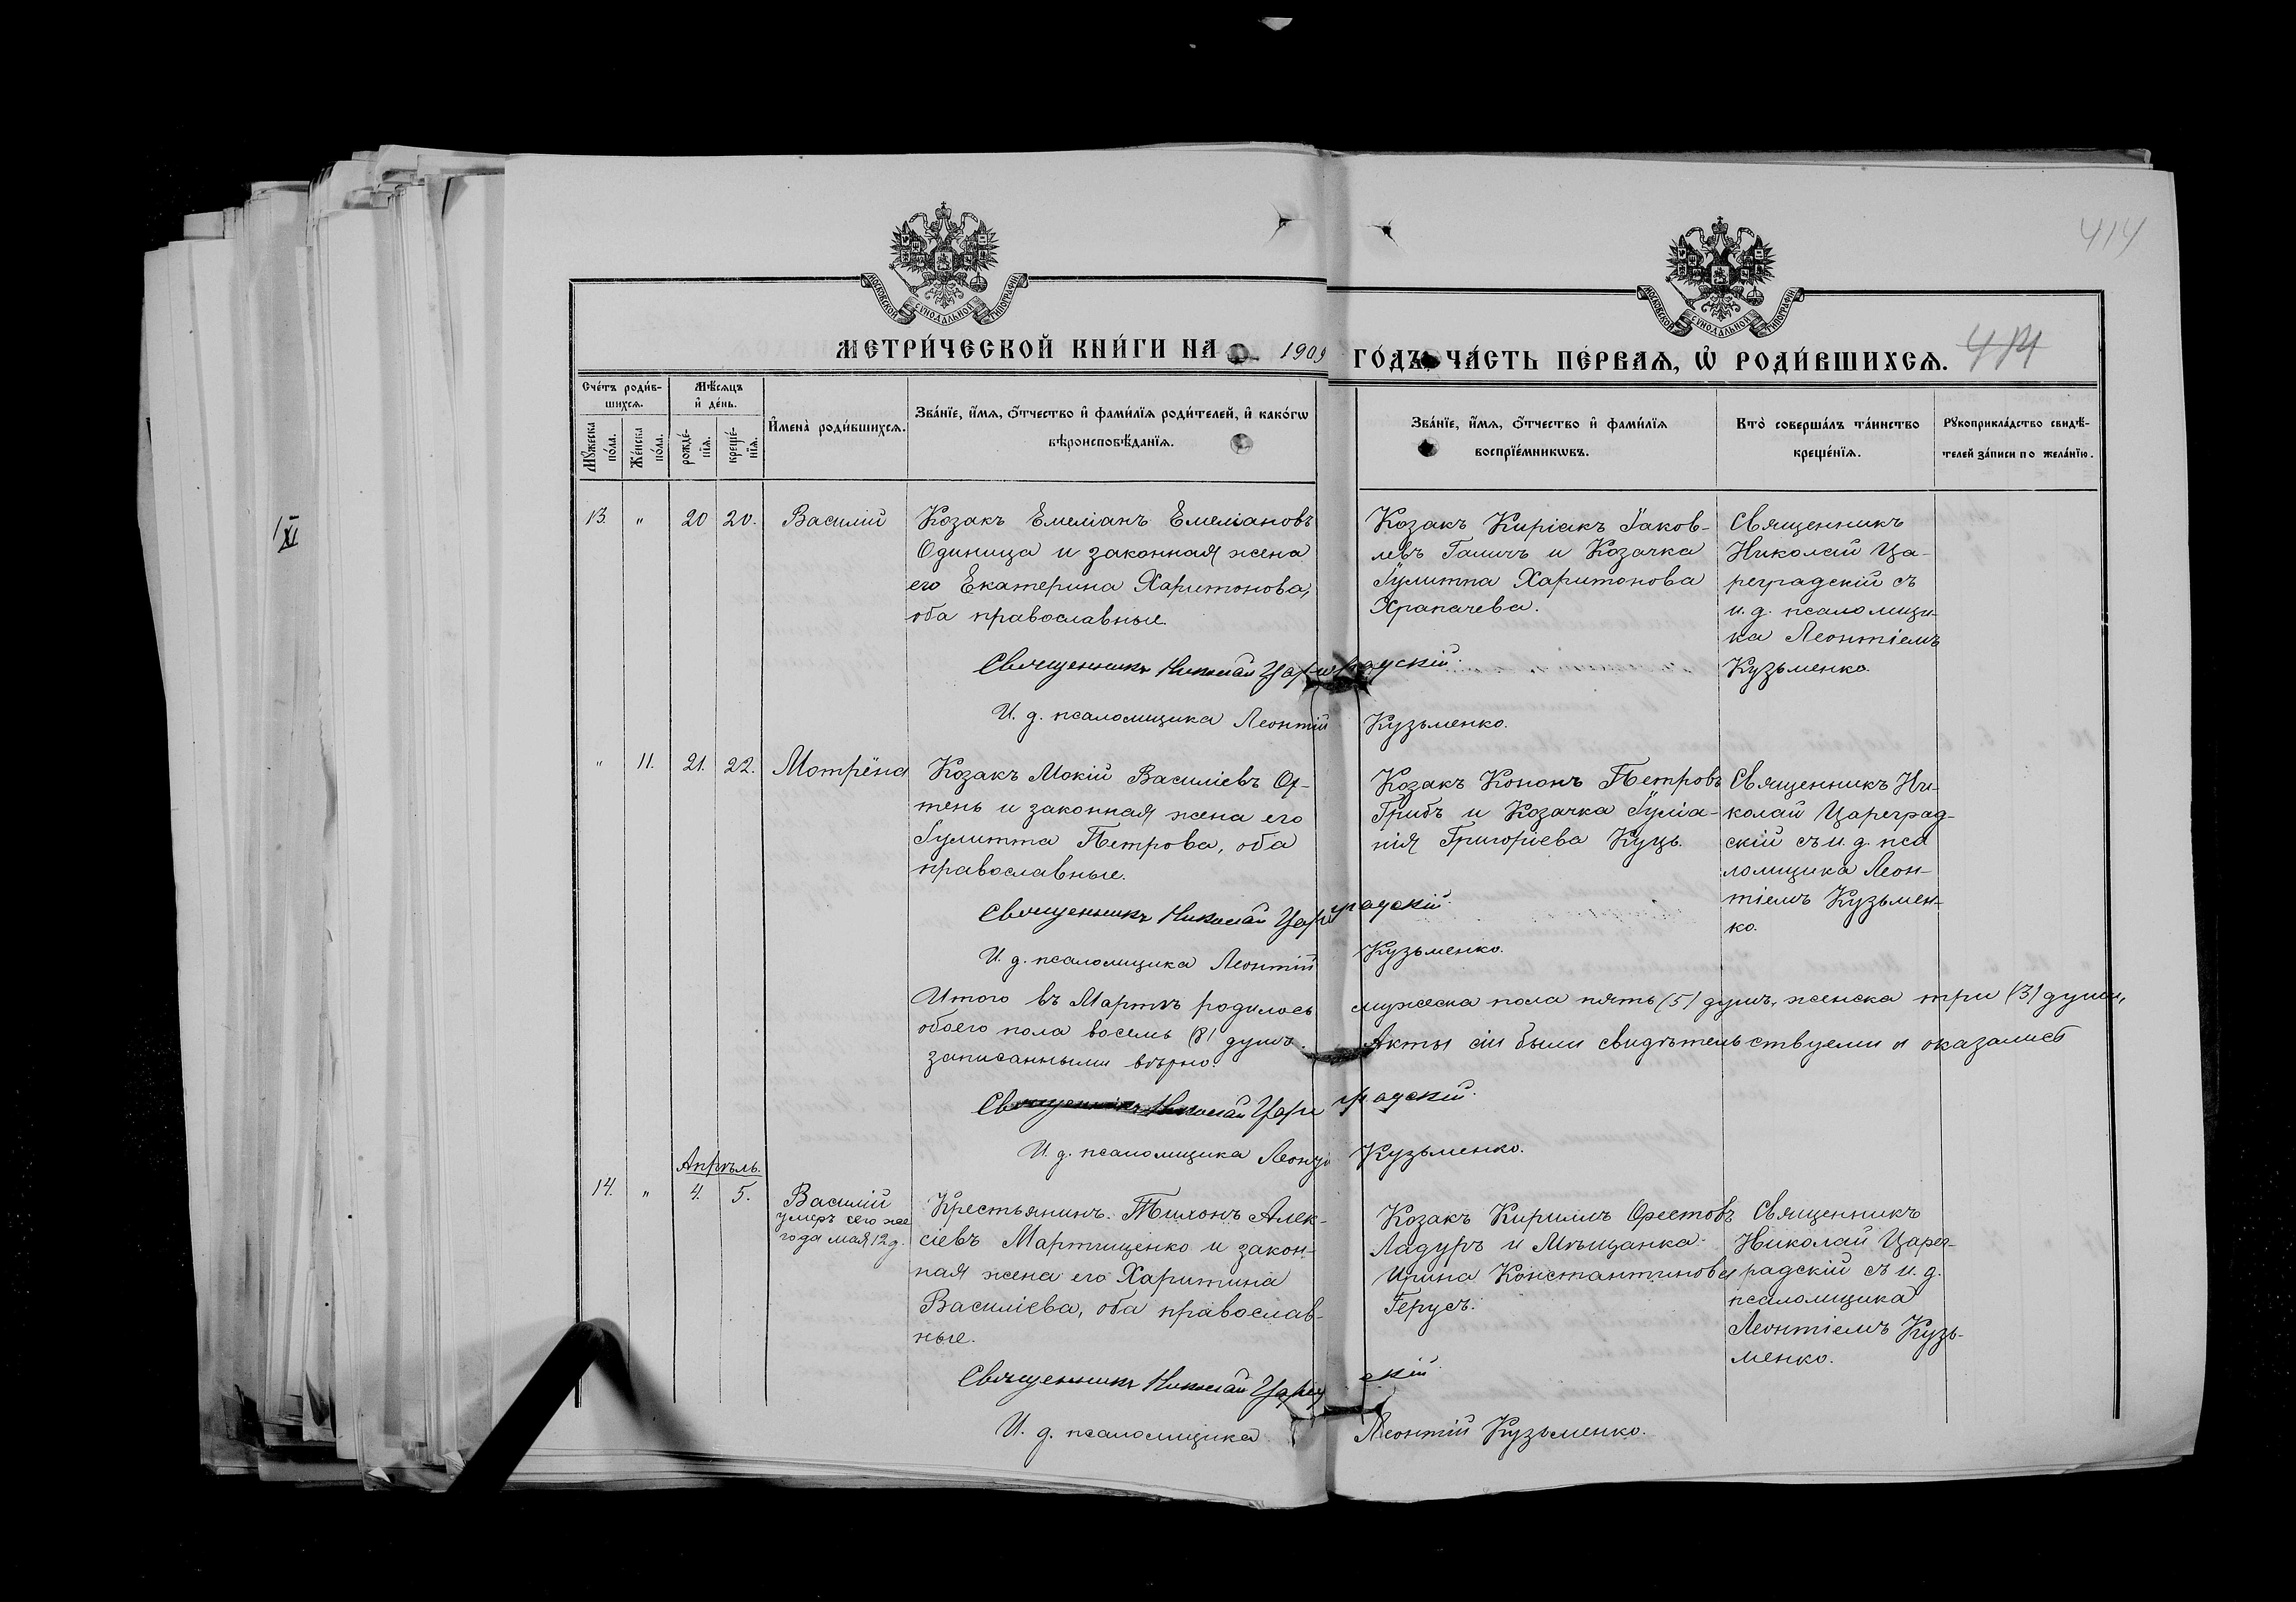 414
МОСКОВСКОЙ СѴНОДАЛЬНОЙ ТИПОГРАФІИ
МОСКОВСКОЙ СѴНОДАЛЬНОЙ ТИПОГРАФІИ
МЕТРИ́ЧЕСКОЙ КНИ́ГИ НА 1909 ГО́ДЪ ЧА́СТЬ ПЕ́РВАѦ, Ѡ҆ РОДИ́ВШИХСѦ.
414
Сче́тъ роди́в-
шихсѧ.
Мѣ́сяцъ
и҆ де́нь.
И҆мена̀ роди́вшихсѧ.
Зва́нїе, и҆́мѧ, ѻ҆́тчество и҆ фами́лїѧ роди́телей, и҆ како́гѡ
вѣроисповѣ́данїѧ.
Зва́нїе, и҆́мѧ, ѻ҆́тчество и҆ фами́лїѧ
воспрїе́мникѡвъ.
Кто̀ соверша́лъ та́инство
креще́нїѧ.
Рꙋкоприкла́дство свидѣ́-
телей за́писи по жела́нїю.
Мꙋ́жеска
по́ла.
Же́нска
по́ла.
рожде́-
нїѧ.
креще́-
нїѧ.
XI
13. " 20 20. Василій
Козакъ Емеліанъ Емеліановъ
Одиница и законная жена
его Екатерина Харитонова,
оба православные.
Козакъ Киріакъ Іаков-
левъ Галичъ и Козачка
Іулитта Харитонова
Храпачева.
Священникъ
Николай Ца-
реградскій съ
и. д. псаломщи-
ка Леонтіемъ
Кузьменко.
Священникъ Николай Цареградскій.
И. д. псаломщика Леонтій Кузьменко.
" 11. 21. 22. Мотрёна
Козакъ Мокій Василіевъ
и законная жена его
Іулитта Петрова, оба
православные.
Козакъ Кононъ Петровъ
Грибъ и Козачка Іуліа-
нія Григоріева Куць.
Священникъ Ни-
колай Цареград-
скій съ и. д. пса
ломщика Леон-
тіемъ Кузьмен-
ко.
Священникъ Николай Цареградскій.
И. д. псаломщика Леонтій Кузьменко.
Итого въ Мартѣ родилось мужеска пола пять (5) душъ, женска три (3) души,
обоего пола восемь (8) душъ. Акты сіи были свидѣтельствуемы и оказались
записанными вѣрно.
Священникъ Николай Цареградскій.
И. д. псаломщика Кузьменко.
Апрѣль.
14. " 4. 5. Василій
умеръ сего же
года мая 12 д.
Крестьянинъ Тихонъ Алек-
сіевъ Мартищенко и закон-
ная жена его Харитина
Василіева, оба православ-
ные.
Козакъ Кириллъ Орестовъ
Ладуръ и Мѣщанка
Ирина Константинова
Герусъ.
Священникъ
Николай Царег-
радскій съ и. д.
псаломщика
Леонтіемъ Кузь-
менко.
Священникъ Николай
И. д. псаломщика Леонтій Кузьменко.